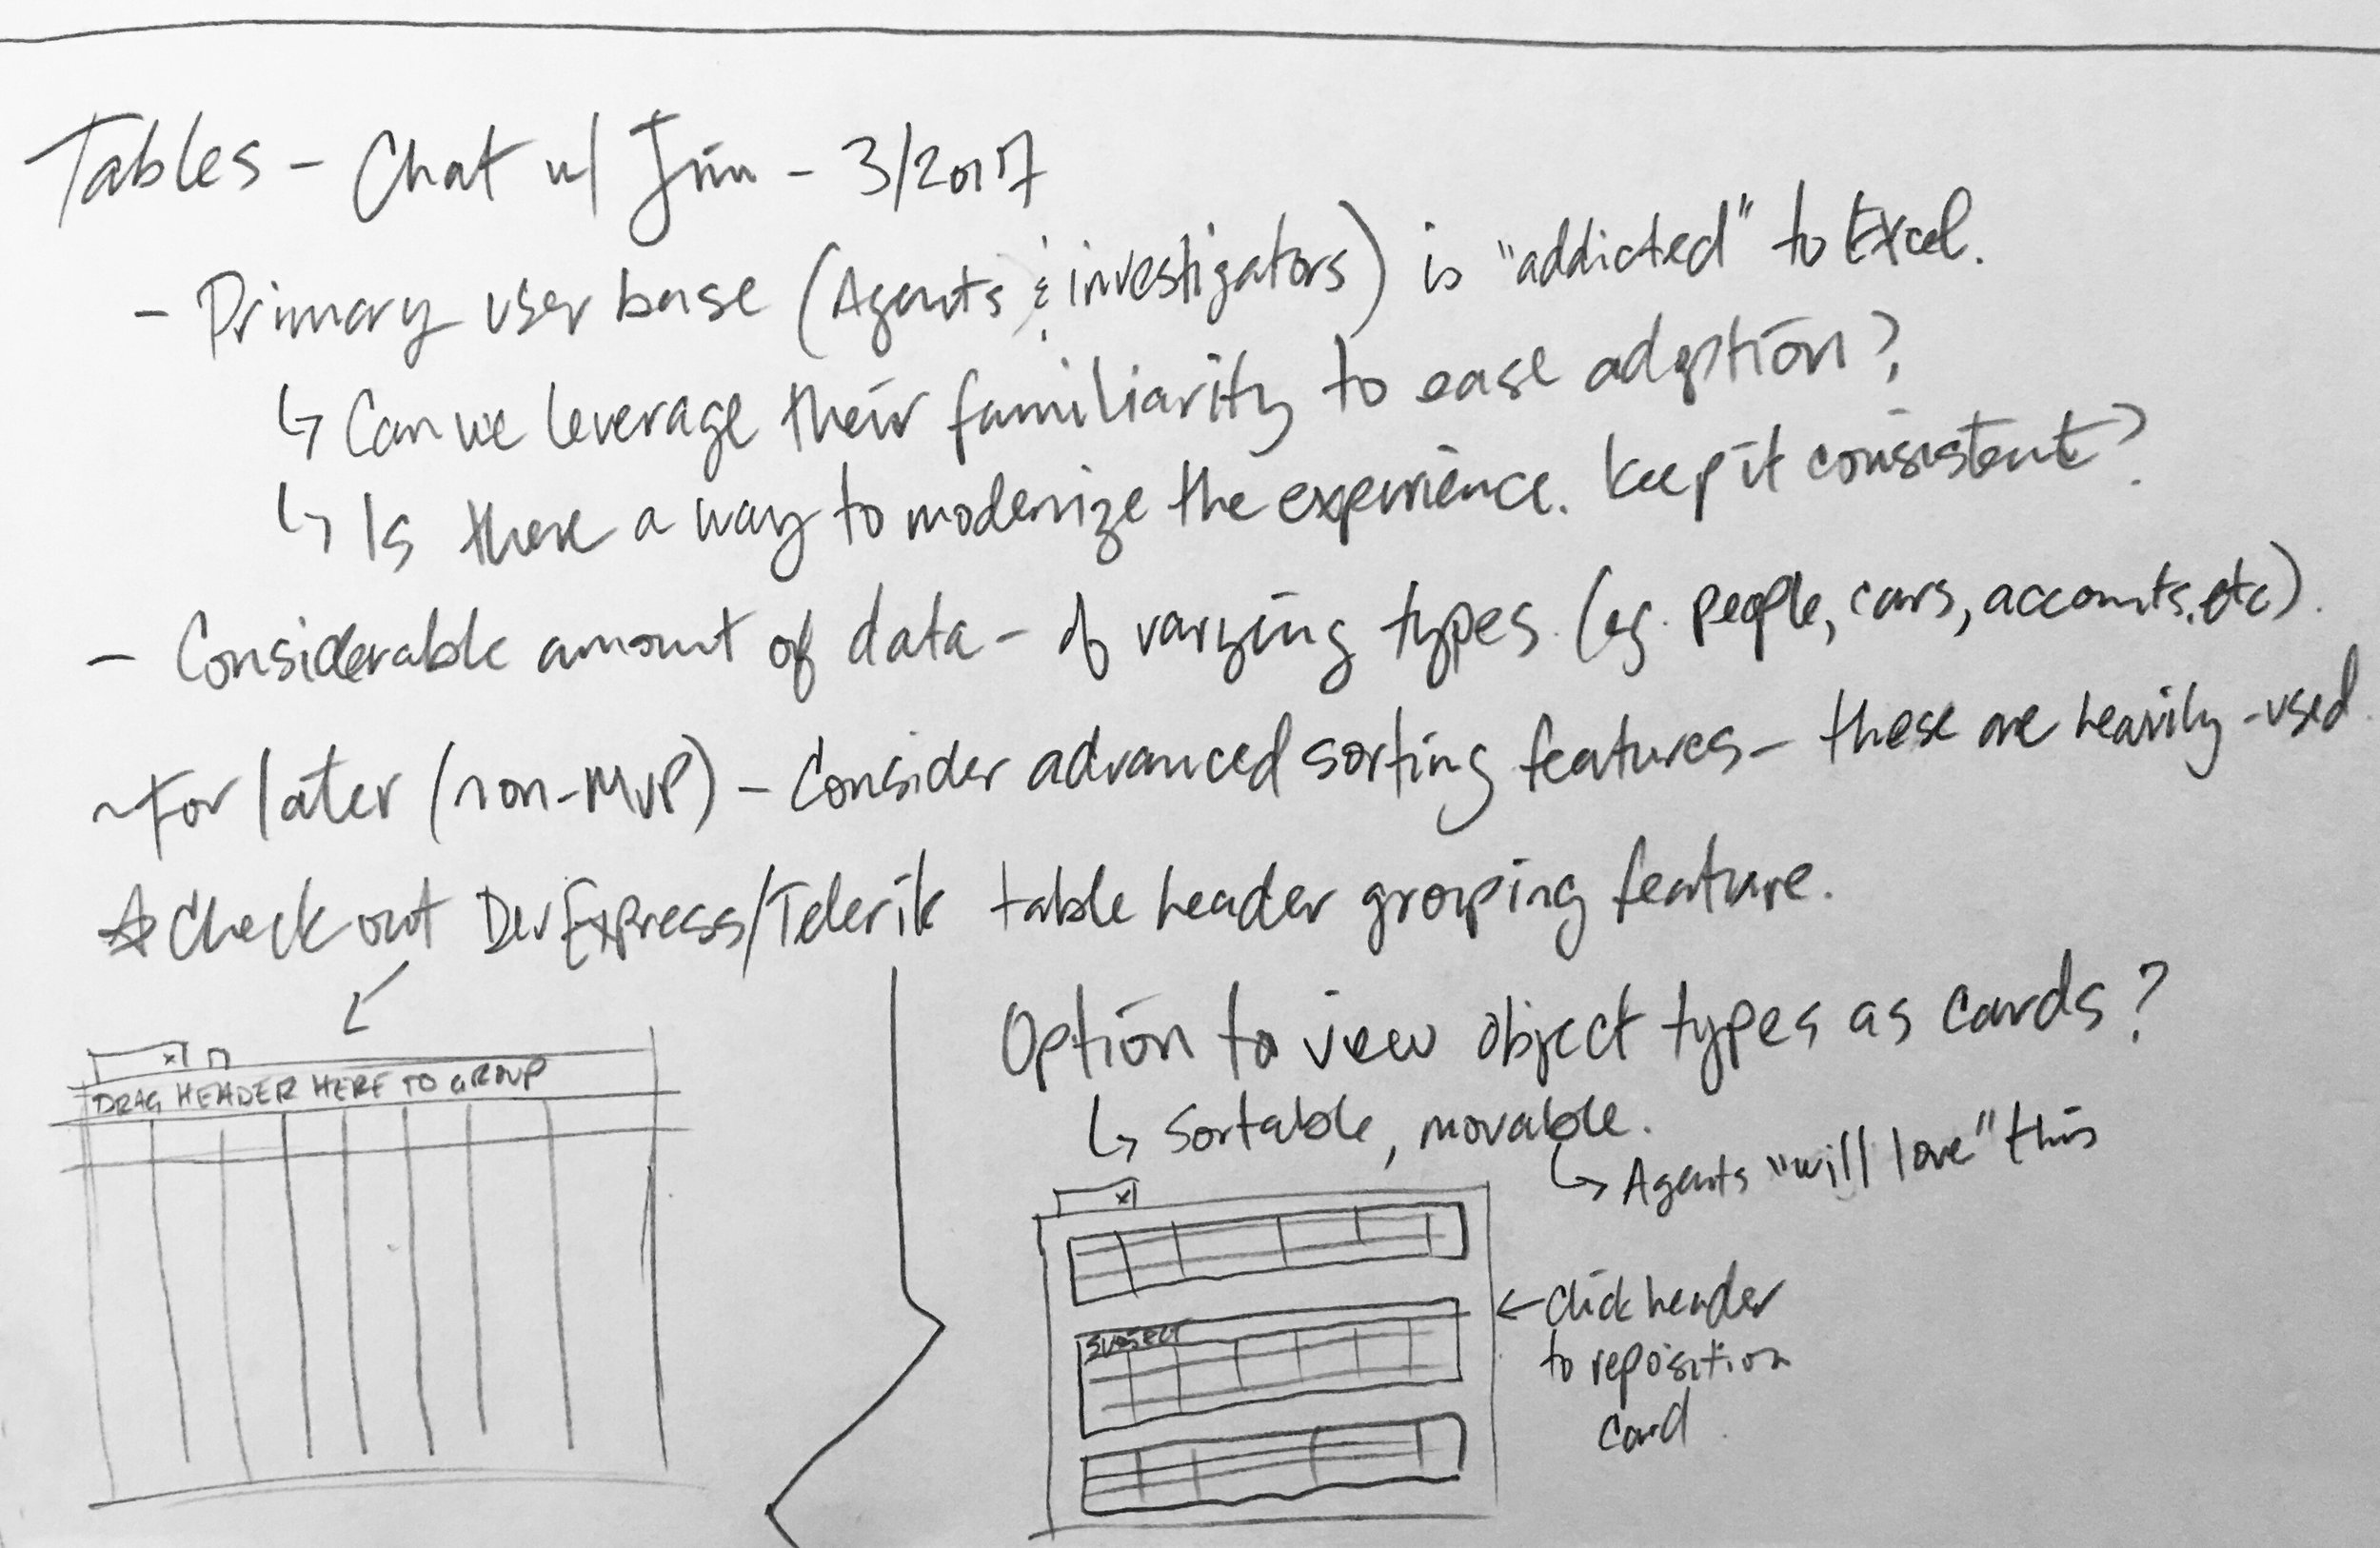 Tables - Chat w/ Jim - 3/2017
- Primary user base (Agents & investigators) is "addicted" to Excel.
↳ Can we leverage their familiarity to ease adoption?
↳ Is there a way to modernize the experience. Keep it consistent?
- Considerable amount of data - of varying types. (eg. people, cars, accounts, etc).
~ For later (non-MVP) - Consider advanced sorting features - these are heavily-used.
☆ Check out DevExpress/Telerik table header grouping feature.
x
DRAG HEADER HERE TO GROUP
Option to view object types as cards?
↳ Sortable, movable.
↳ Agents "will love" this
x
SUBJECT
← Click header
to reposition
card.